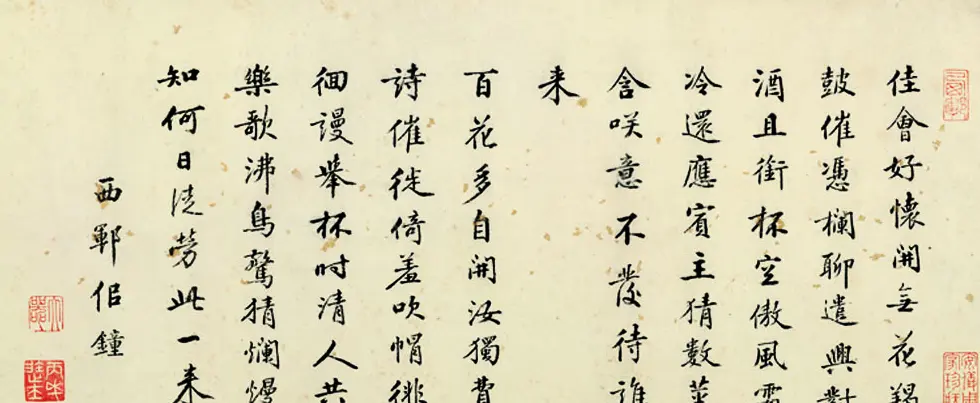 佳會好懷開無花羯
鼓催憑欄聊遣興對
酒且銜杯空傲風霜
冷還應賓主猜數莖
含咲意不發待誰
来
百花多自開汝獨費
詩催徙倚羞吹帽徘
徊謾舉杯时清人共
樂歌沸鳥驚猜爛熳
知何日徒勞此一来
西鄆侣鐘